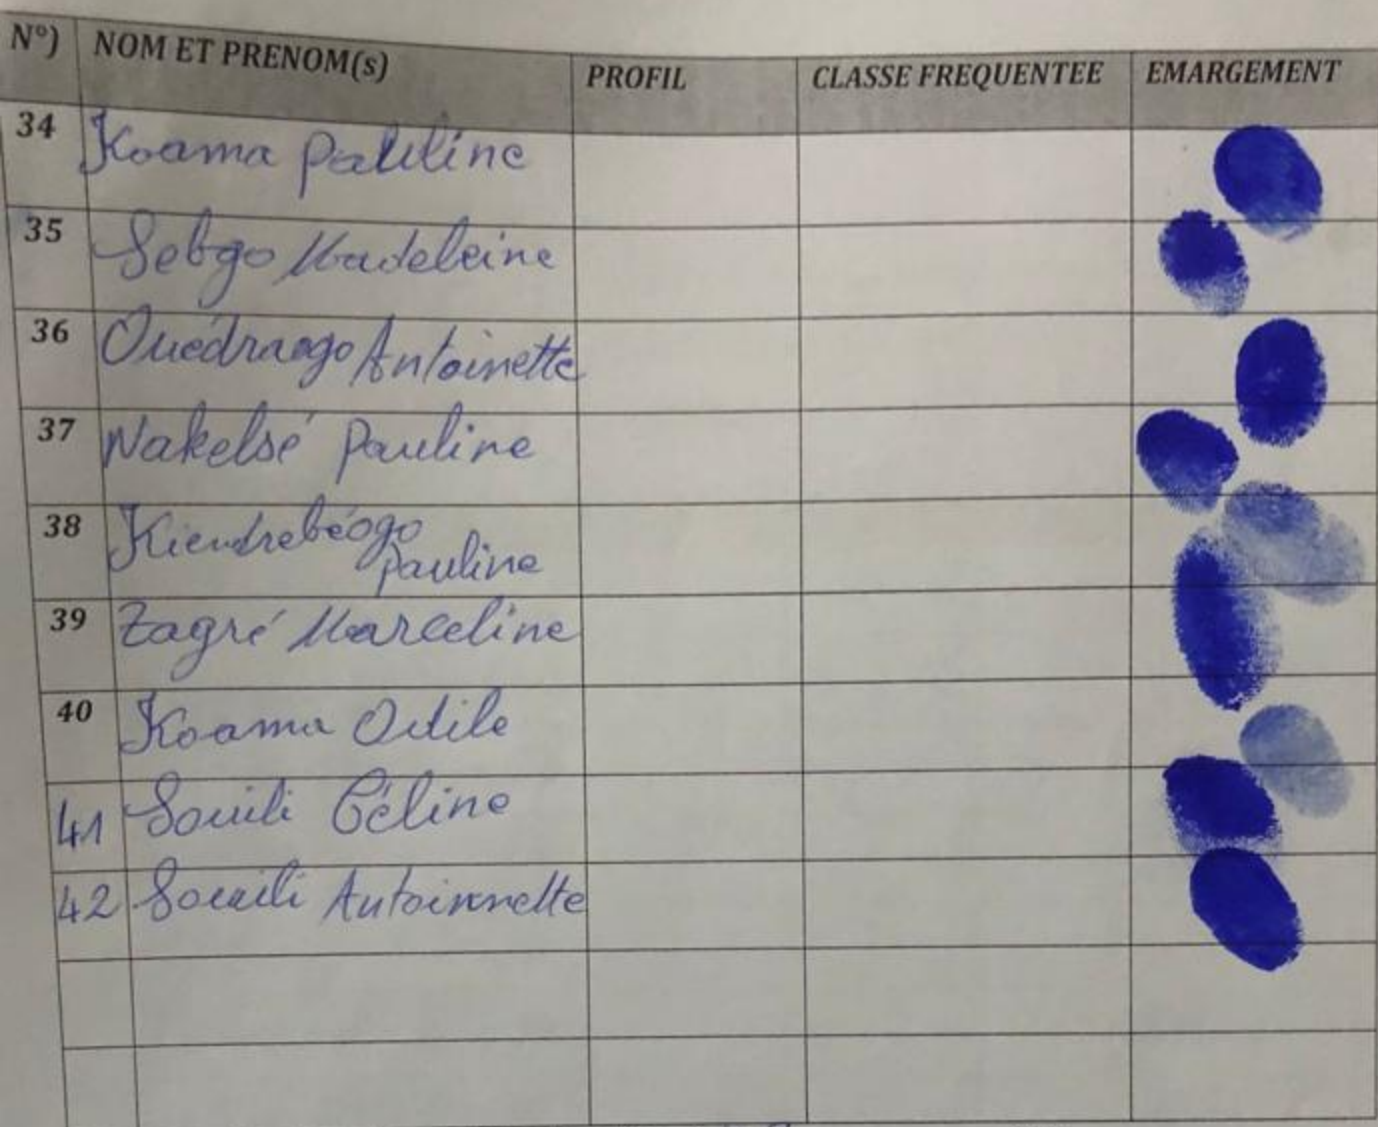 N°) NOM ET PRENOM(s) PROFIL CLASSE FREQUENTEE EMARGEMENT
34 Koama Pauline
35 Sebgo Madeleine
36 Ouédraogo Antoinette
37 Nakelsé Pauline
38 Kiendrebéogo
Pauline
39 Zagré Marceline
40 Koama Odile
41 Souili Céline
42 Souili Antoinnette